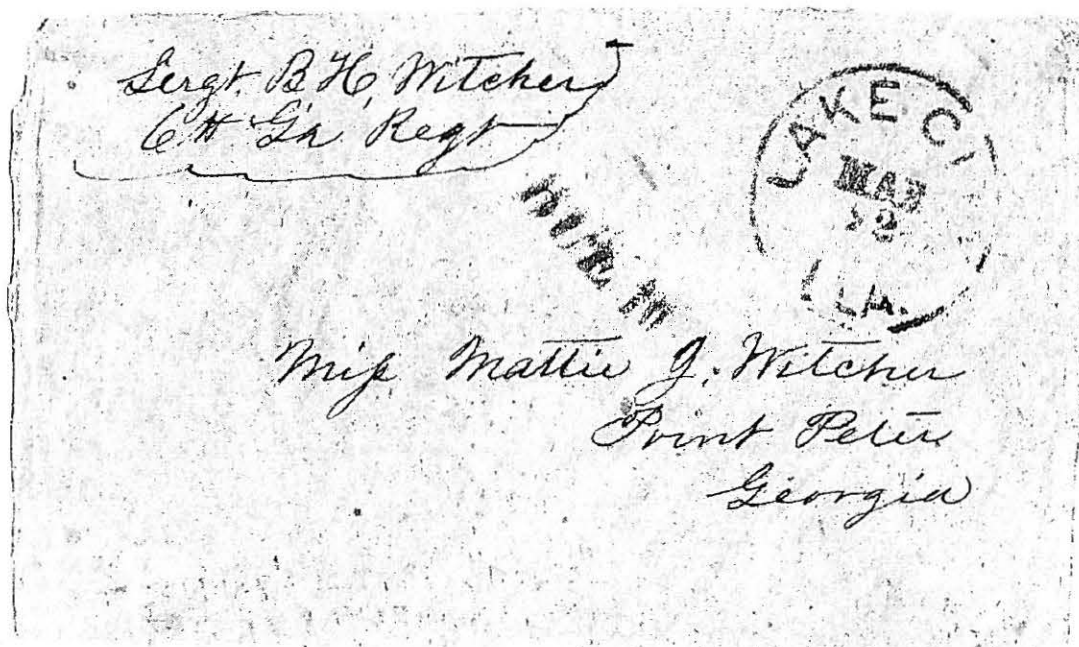 Sergt. B H, Witcher
6th Ga Regt
LAKE CI
FLA.
DUE 10
Miſs Mattie J. Witcher
Point Peter
Georgia